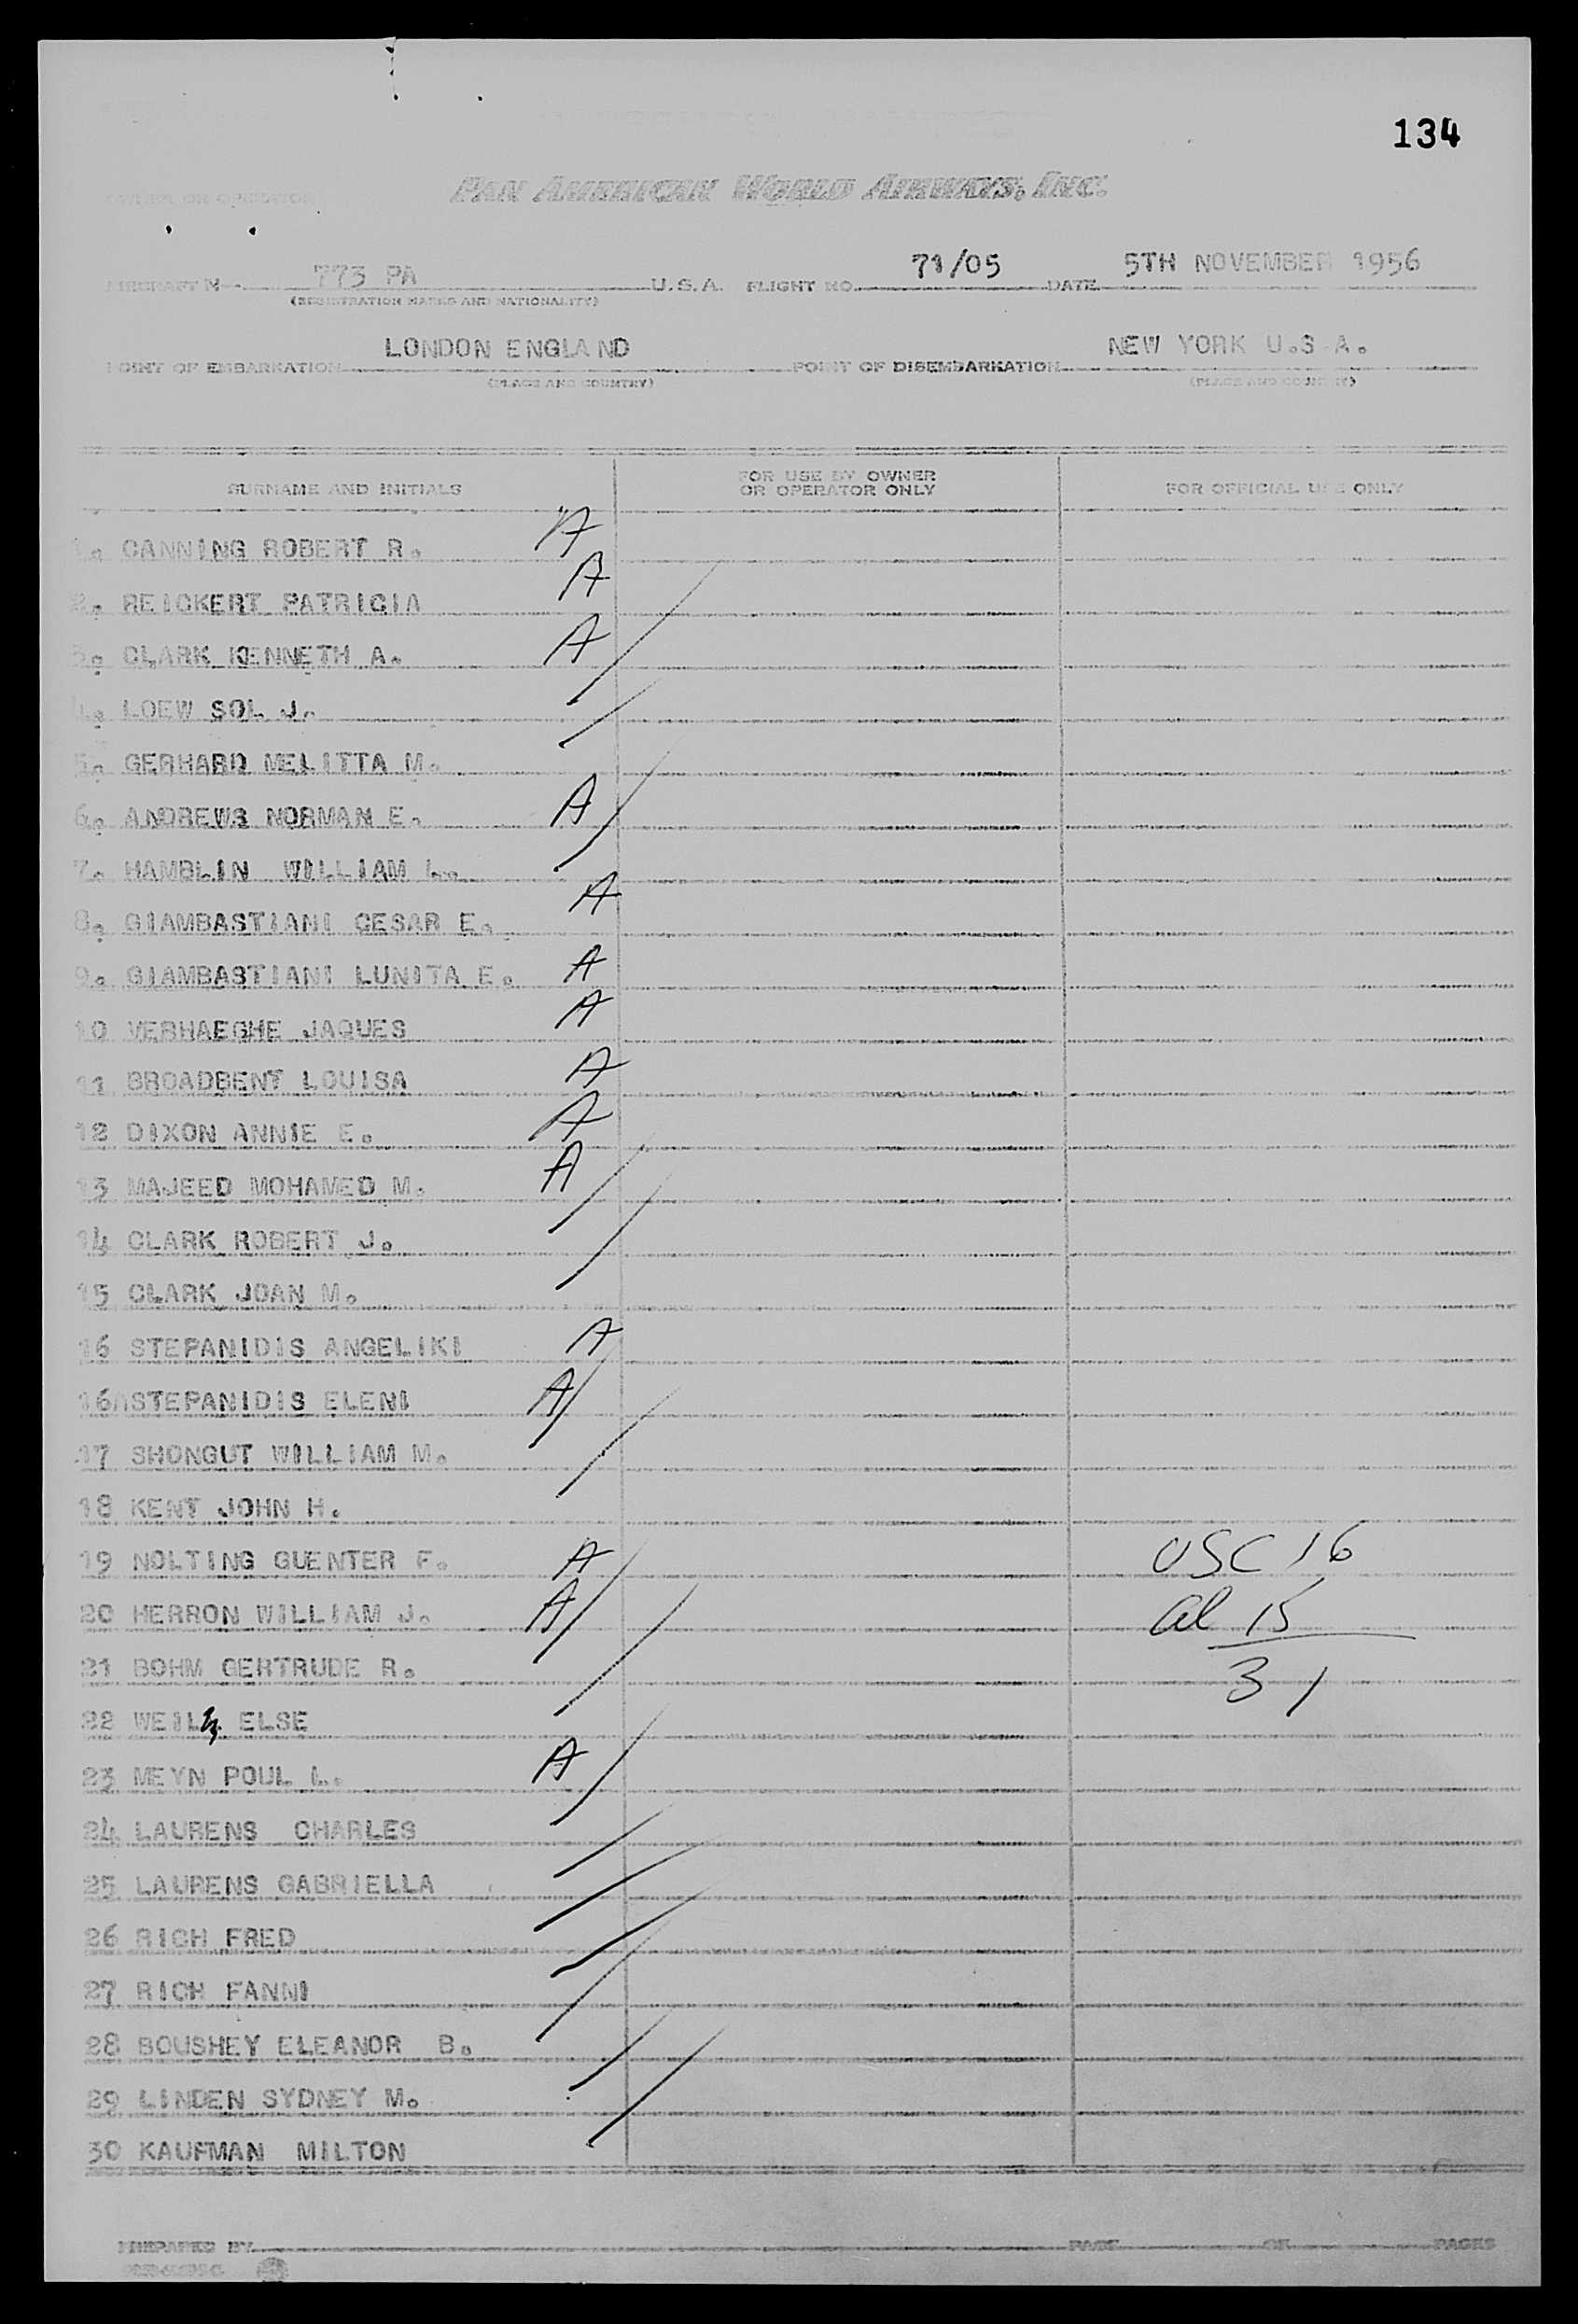 134
OWNER OR OPERATOR
PAN AMERICAN WORLD AIRWAYS, INC.
AIRCRAFT N 773 PA U.S.A. FLIGHT NO. 71/05 DATE 5TH NOVEMBER 1956
(REGISTRATION MARKS AND NATIONALITY)
POINT OF EMBARKATION LONDON ENGLAND POINT OF DISEMBARKATION NEW YORK U.S.A.
(PLACE AND COUNTRY) (PLACE AND COUNTRY)
SURNAME AND INITIALS FOR USE BY OWNER OR OPERATOR ONLY FOR OFFICIAL USE ONLY
1. CANNING ROBERT R. A
2. REICKERT PATRICIA A
3. CLARK KENNETH A. A
4. LOEW SOL J.
5. GERHARD MELITTA M.
6. ANDREWS NORMAN E. A
7. HAMBLIN WILLIAM L.
8. GIAMBASTIANI CESAR E. A
9. GIAMBASTIANI LUNITA E. A
10 VERHAEGHE JAQUES A
11 BROADBENT LOUISA A
12 DIXON ANNIE E. A
13 MAJEED MOHAMED M. A
14 CLARK ROBERT J.
15 CLARK JOAN M.
16 STEPANIDIS ANGELIKI A
16A STEPANIDIS ELENI A
17 SHONGUT WILLIAM M.
18 KENT JOHN H.
19 NOLTING GUENTER F. A USC 16
20 HERRON WILLIAM J. A al 15
21 BOHM GERTRUDE R. 31
22 WEIL ELSE
23 MEYN POUL L. A
24 LAURENS CHARLES
25 LAURENS GABRIELLA
26 RICH FRED
27 RICH FANNI
28 BOUSHEY ELEANOR B.
29 LINDEN SYDNEY M.
30 KAUFMAN MILTON
PREPARED BY PAGE OF PAGES